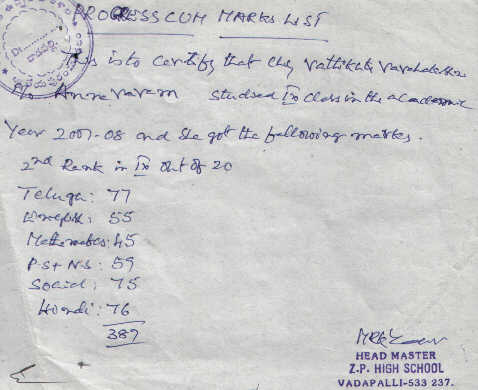 PROGRESS CUM MARKS LIST
This is to certify that Chy Vathikuti Varahalakshmi
D/o Annavaram studied IX class in the academic
Year 2007-08 and she got the following marks.
2nd Rank in IX out of 20
Telugu: 77
English: 55
Mathematics: 45
P.S + N.S: 59
Social: 75
Hindi: 76
387
HEAD MASTER
Z.P. HIGH SCHOOL
VADAPALLI-533 237.